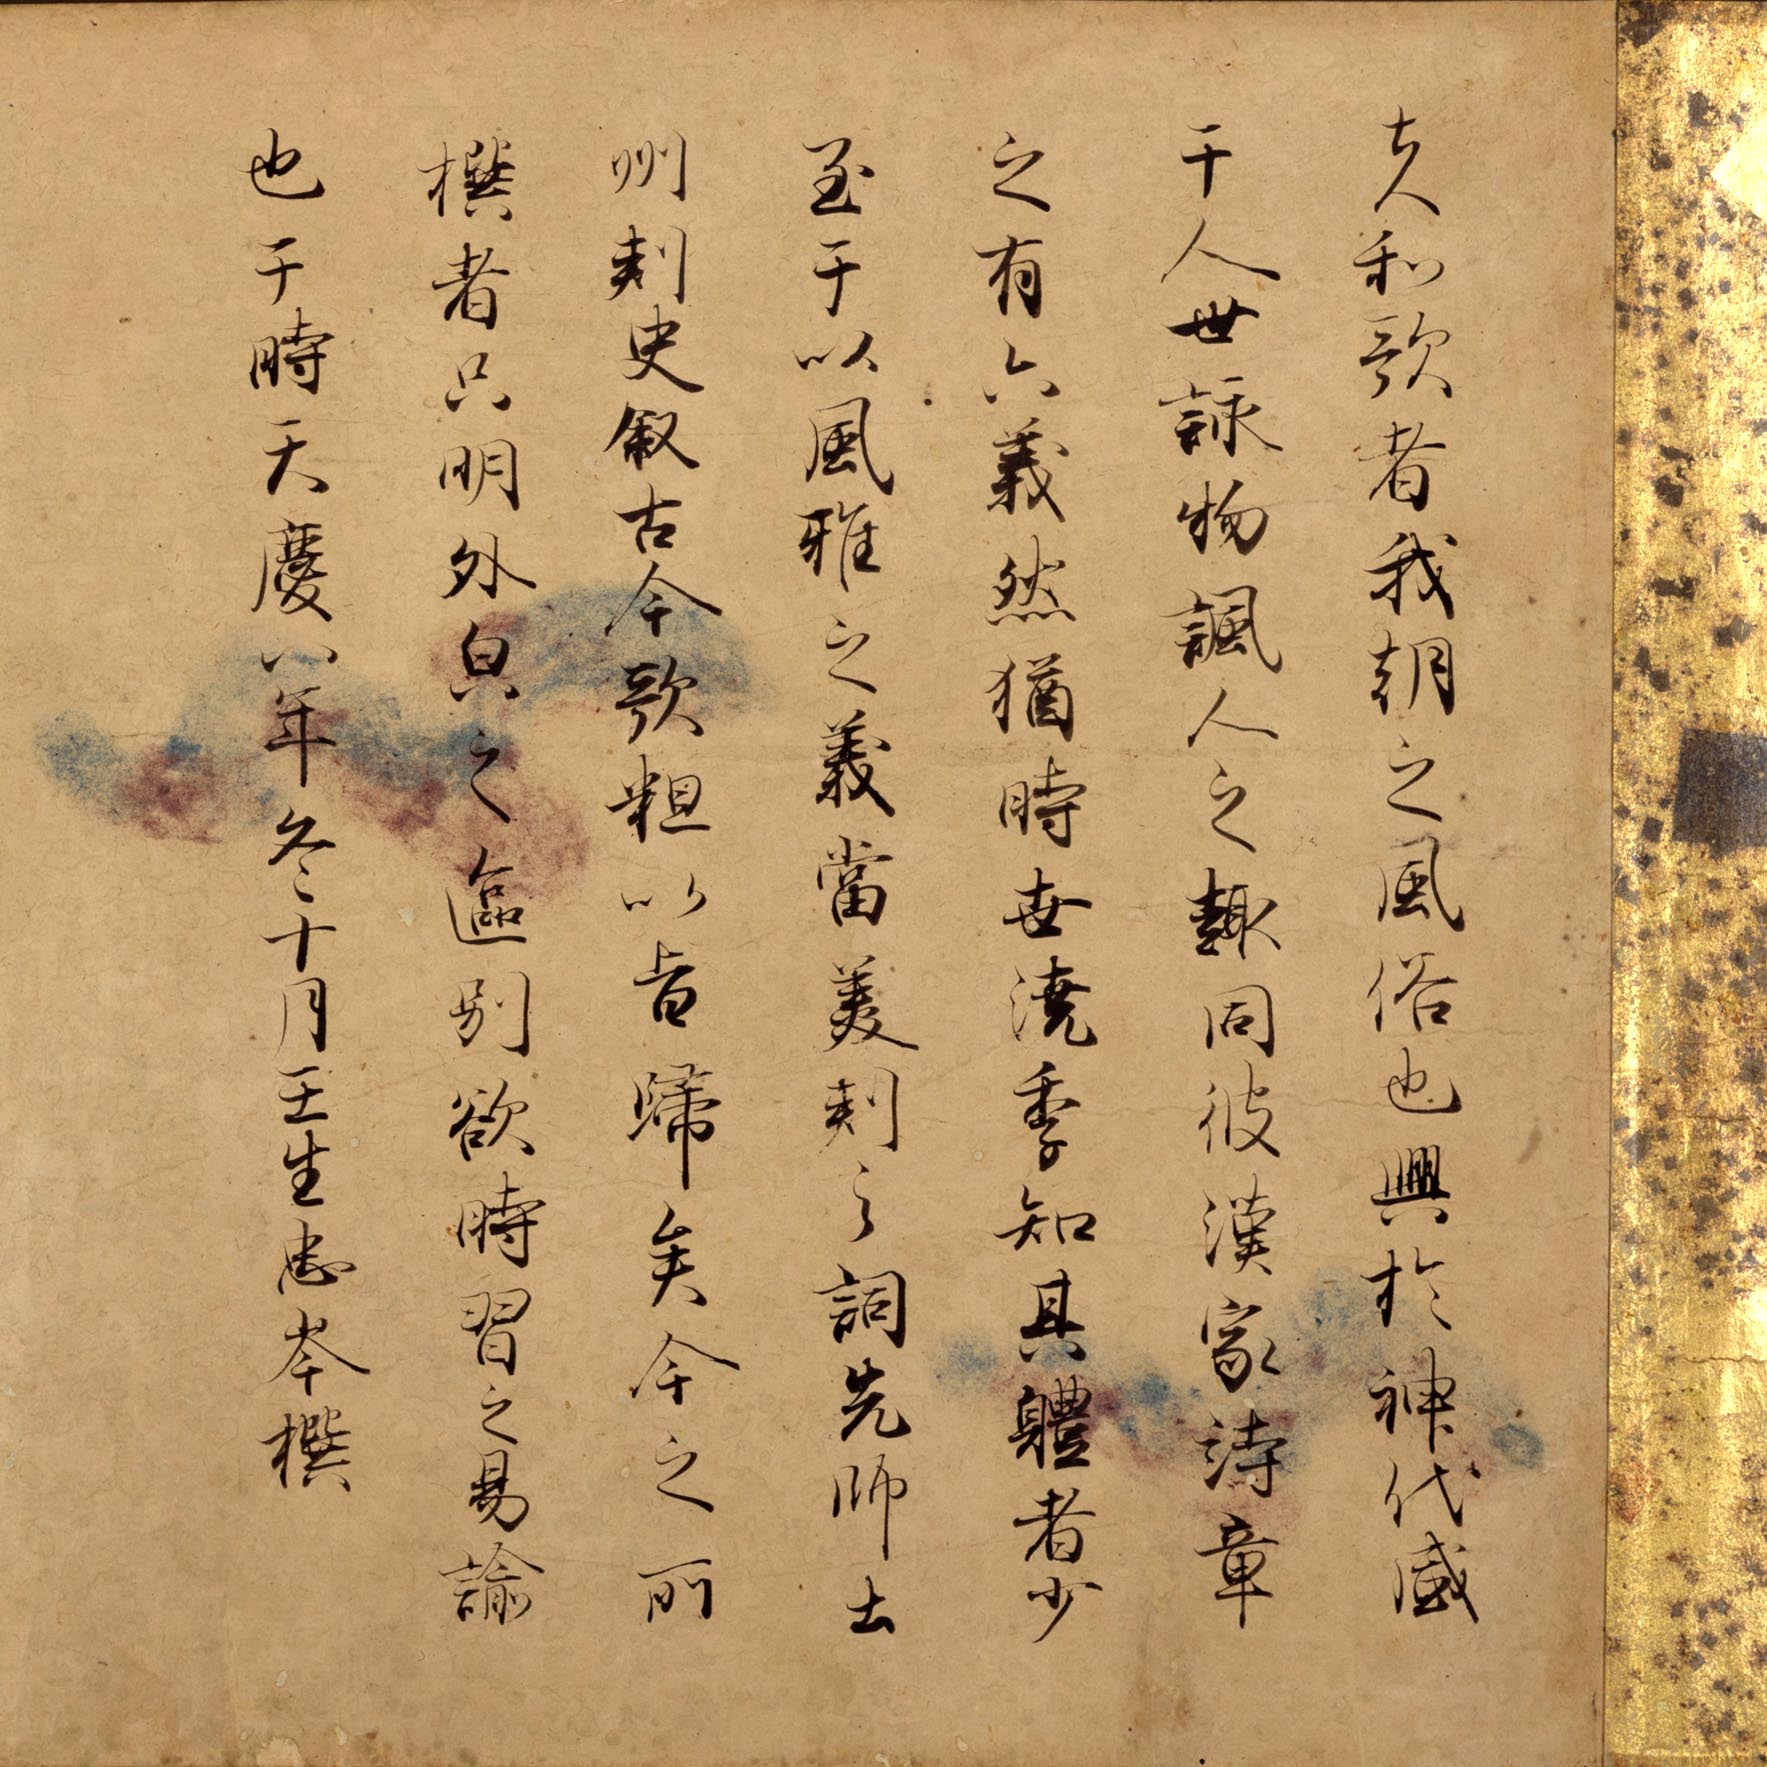 夫和歌者我朝之風俗也興於神代盛
于人世詠物諷人之趣同彼漢家詩章
之有六義然猶時世澆季知其體者少
至于以風雅之義當美刺之詞先師土
州刺史叙古今歌粗以旨歸矣今之所
撰者只明外皃之區別欲時習之易諭
也于時天慶八年冬十月壬生忠岑撰